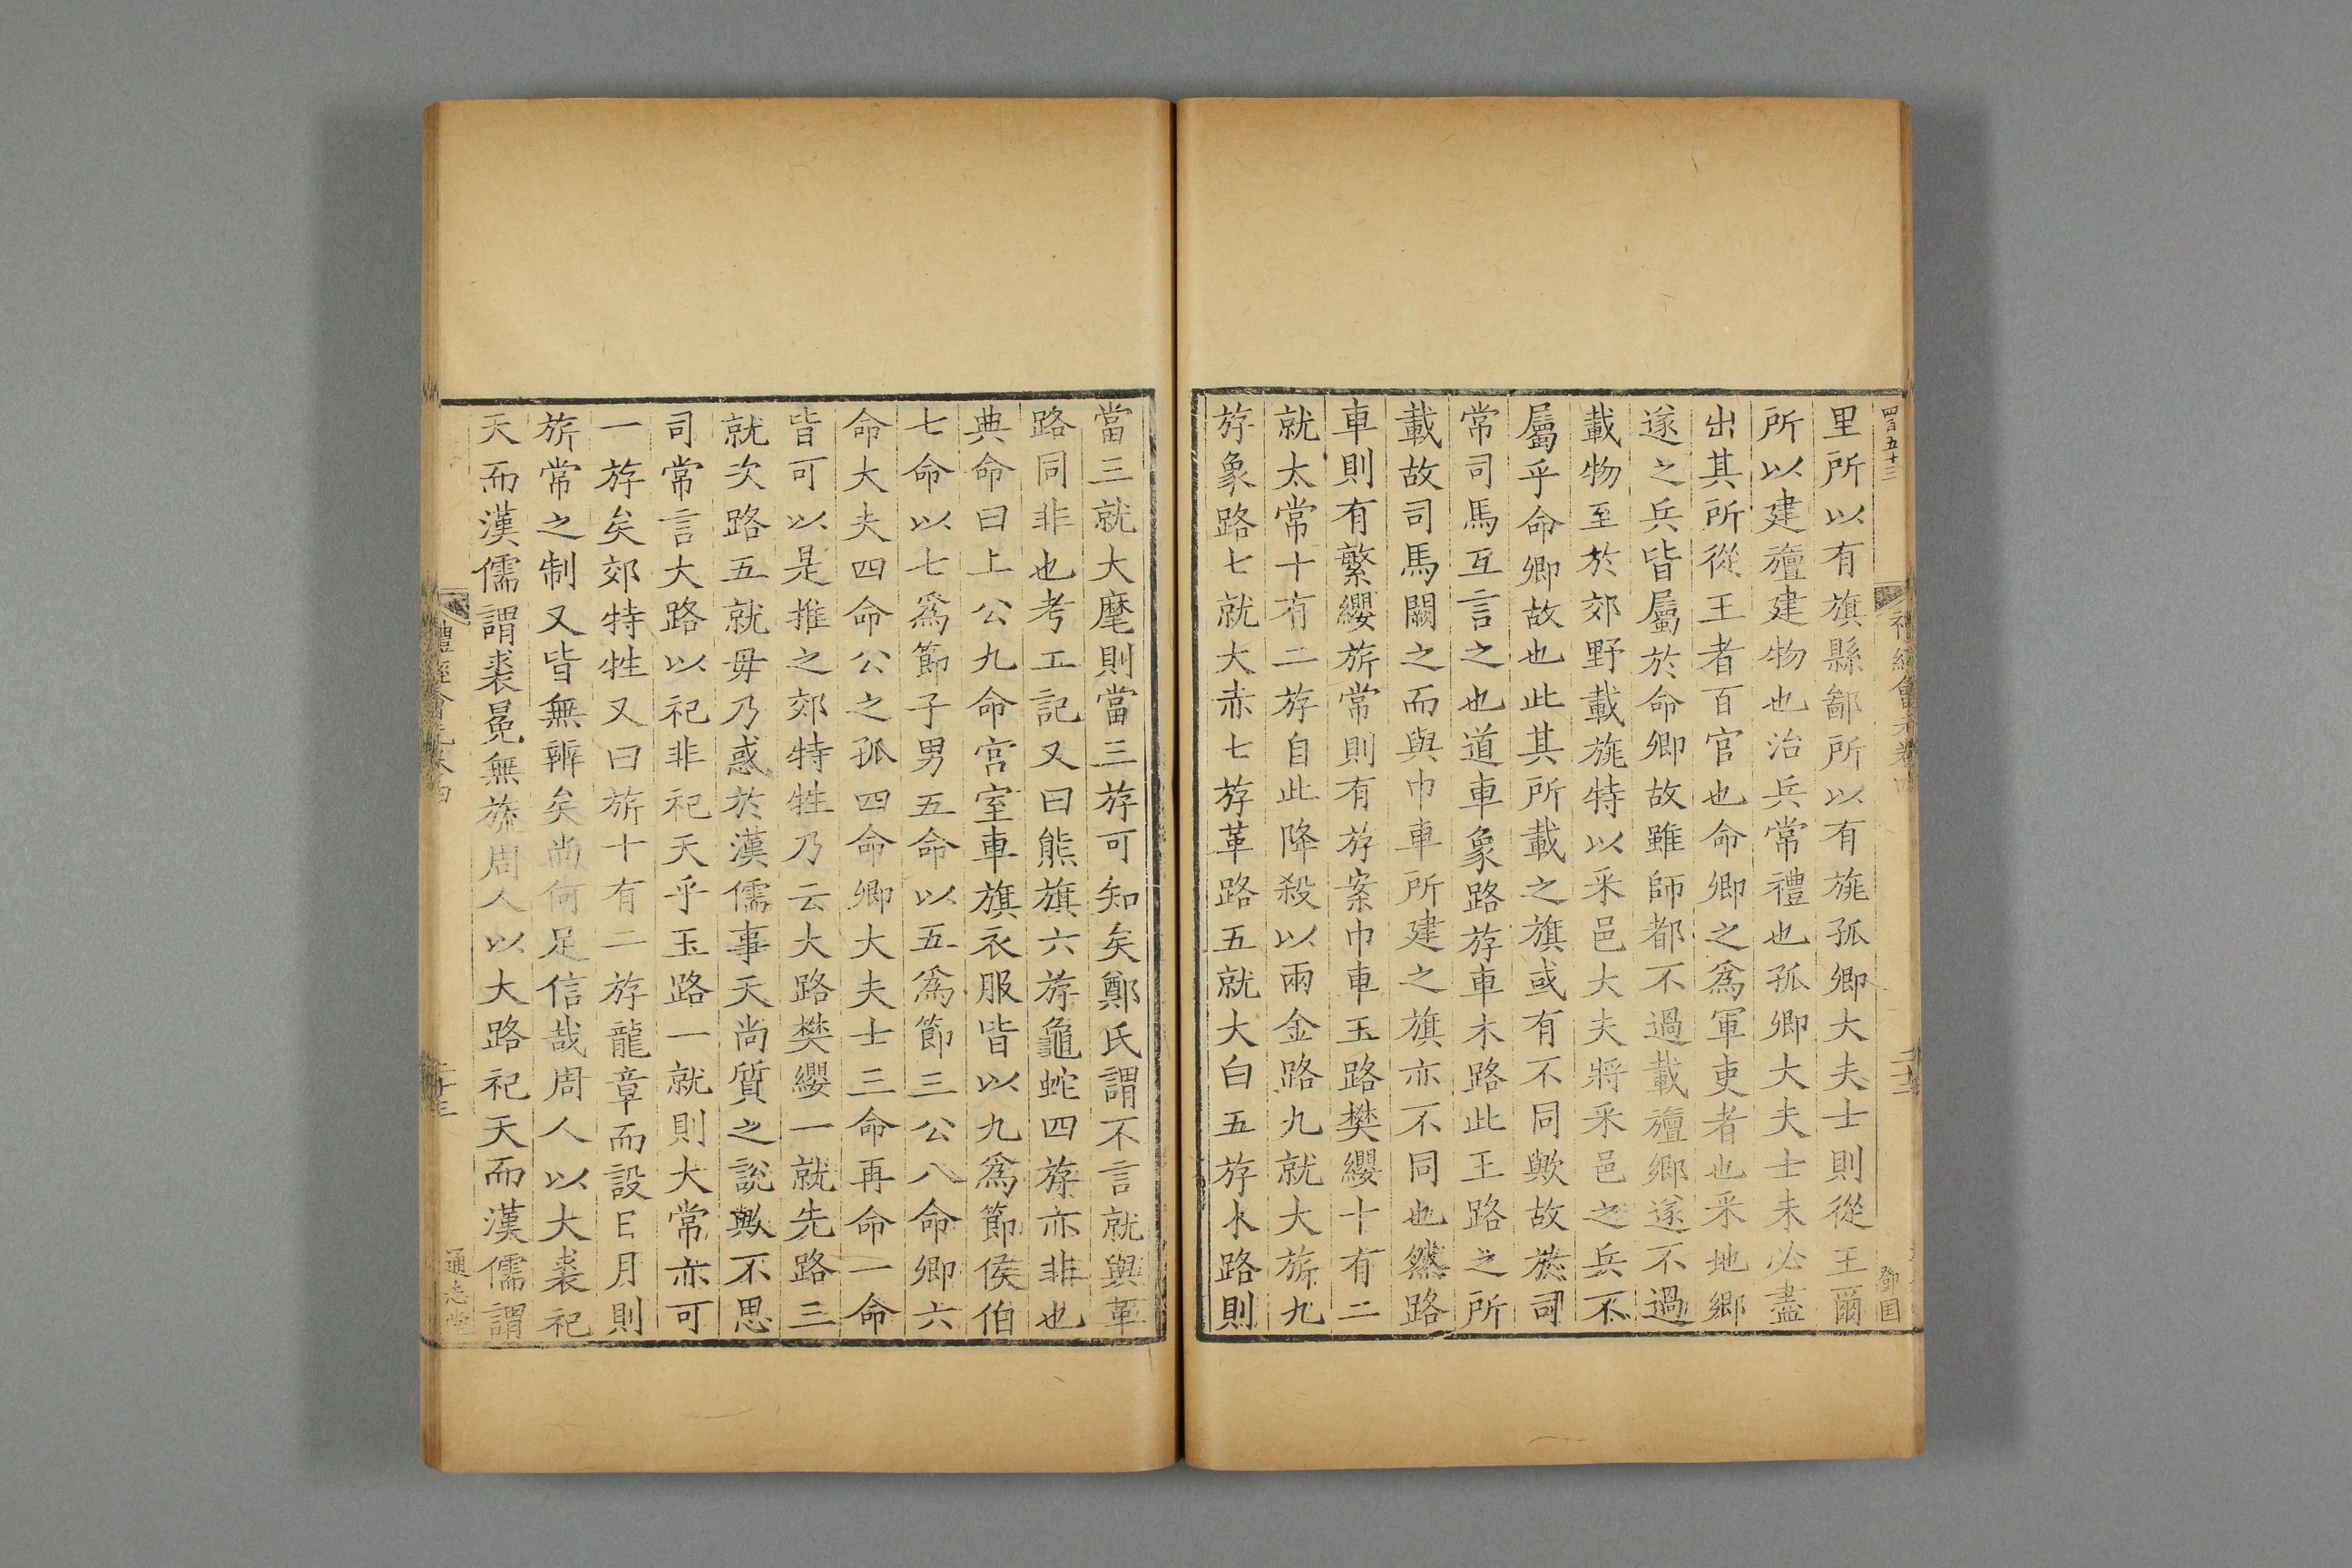 里所以有旗縣鄙所以有旐孤卿大夫士則從王爾
所以建旜建物也治兵常禮也孤卿大夫士未必盡
出其所從王者百官也命卿之爲軍吏者也釆地鄉
遂之兵皆屬於命卿故雖師都不過載旜鄉遂不過
載物至於郊野載旐特以釆邑大夫將釆邑之兵不
屬乎命卿故也此其所載之旗或有不同歟故於司
常司馬互言之也道車象路斿車木路此王路之所
載故司馬闕之而與巾車所建之旗亦不同也然路
車則有繁纓旂常則有斿案巾車玉路樊纓十有二
就太常十有二斿自此降殺以兩金路九就大旂九
斿象路七就大赤七斿革路五就大白五斿木路則
當三就大麾則當三斿可知矣鄭氏謂不言就與革
路同非也考工記又曰熊旗六斿龜蛇四斿亦非也
典命曰上公九命宫室車旗衣服皆以九爲節侯伯
七命以七爲節子男五命以五爲節三公八命卿六
命大夫四命公之孤四命卿大夫士三命再命一命
皆可以是推之郊特牲乃云大路樊纓一就先路三
就次路五就毋乃惑於漢儒事天尚質之說歟不思
司常言大路以祀非祀天乎玉路一就則大常亦可
一斿矣郊特牲又曰旂十有二斿龍章而設日月則
旂常之制又皆無辨矣尚何足信哉周人以大裘祀
天而漢儒謂裘冕無旒周人以大路祀天而漢儒謂
禮經會元卷四
通志堂